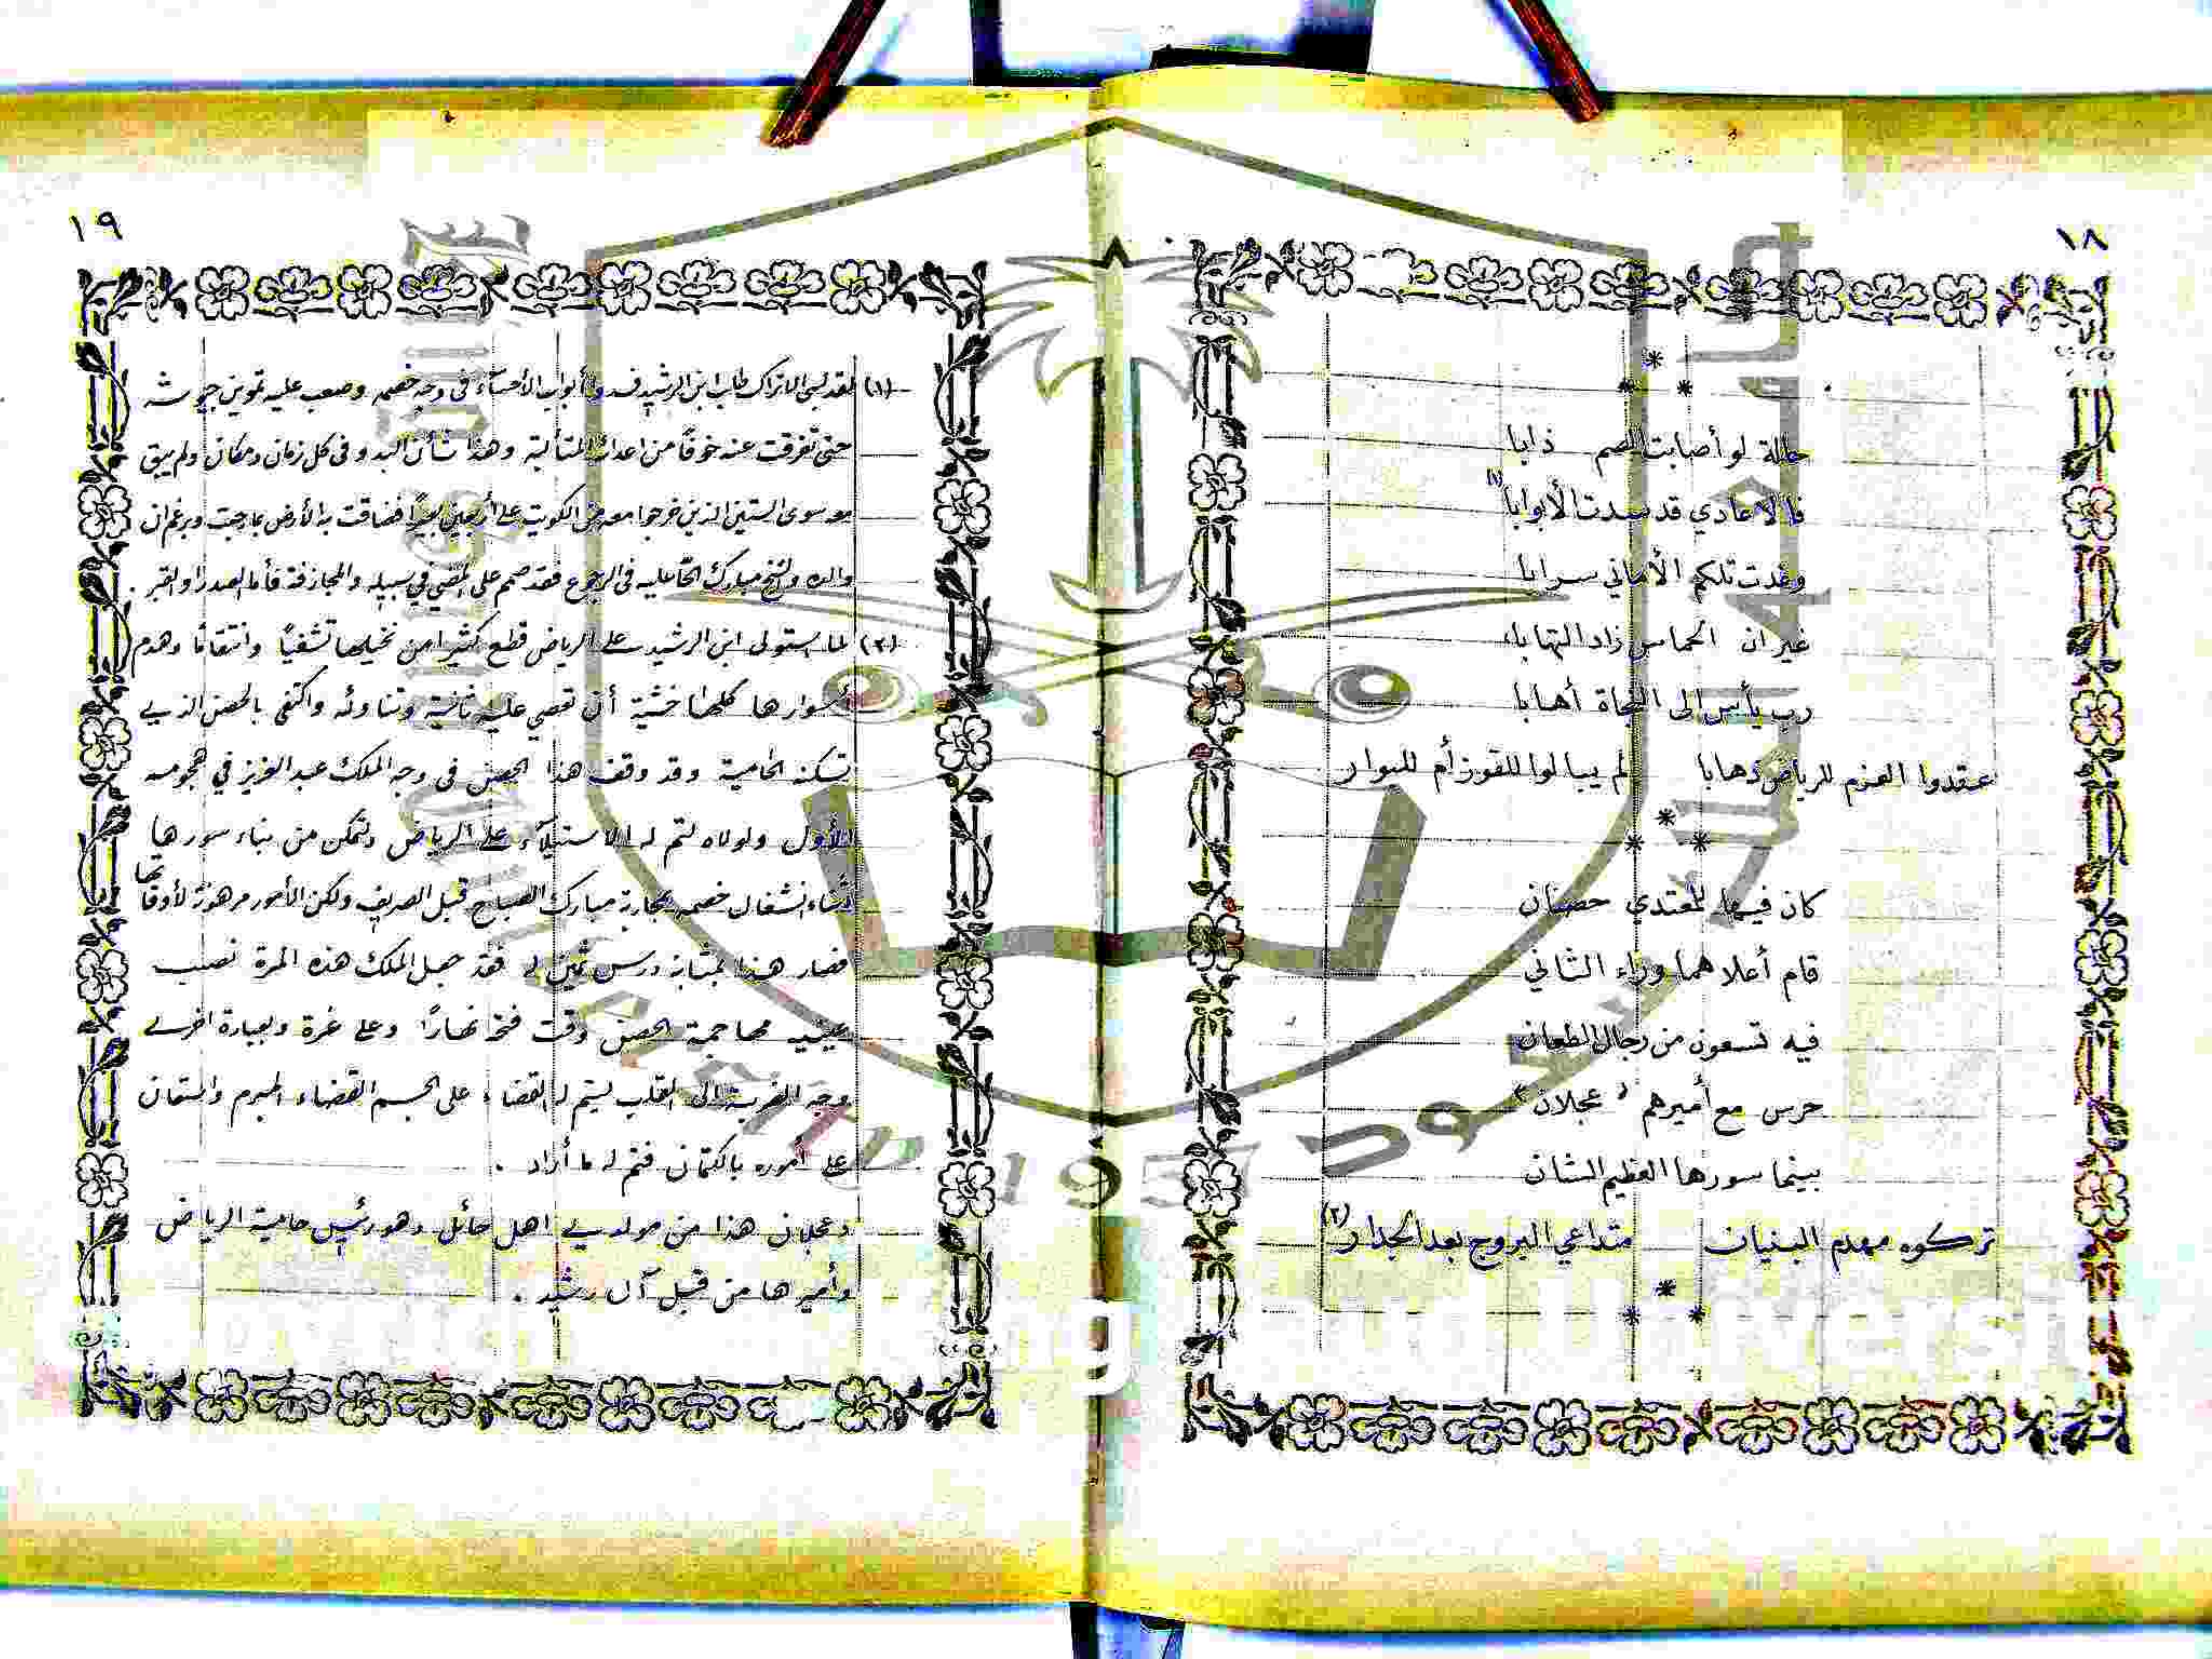 ١٨
حالة لو أصابت الصم ذابا
فالأعادي قد سدت الأبوابا (١)
وغدت تلكم الأماني سرابا
غير ان الحماس زاد التهابا
رب يأس الى النجاة أهابا
عقدوا العزم للرياض ذهابا لم يبالوا للفوز أم للبوار
كان فيها للمعتدي حصنان
قام أعلاهما وراء الثاني
فيه تسعون من رجال الطعان
حرس مع أميرهم "عجلان"
بينما سورها العظيم الشان
تركوه مهدم البنيان متداعي البروج بعد الجدار (٢)
١٩
(١) لقد لبى الاتراك طلب ابن الرشيد فسدوا أبواب الأحساء في وجه خصمه وصعب عليه تموين جيوشه
حتى تفرقت عنه خوفاً من اعدائه المتألبة وهذا شأن البدو في كل زمان ومكان ولم يبق
معه سوى الستين الذين خرجوا معه من الكويت على أربعين بعيراً فضاقت به الأرض بما رحبت وبرغم ان
والده والشيخ مبارك الحّا عليه في الرجوع فقد صمم على المضي في سبيله والمجازفة فأما الصدر او القبر .
(٢) لما استولى ابن الرشيد على الرياض قطع كثيرا من نخيلها تشفياً وانتقاماً وهدم
أسوارها كلها خشية أن تعصي عليه ثانية وتناوئه واكتفى بالحصن الذي
تسكنه الحامية وقد وقف هذا الحصن في وجه الملك عبد العزيز في هجومه
الأول ولولاه لتم له الاستيلاء على الرياض ولتمكن من بناء سورها
أثناء انشغال خصمه بمحاربة مبارك الصباح قبل الصريف ولكن الأمور مرهونة لأوقاتها
فصار هذا بمثابة درس ثمين له فقد جعل الملك هذه المرة نصب
عينيه مهاجمة الحصن وقت فتحه نهاراً وعلى غرة وبعبارة اخرى
وجه الضربة الى القلب ليتم له القضاء على الجسم القضاء المبرم واستعان
على أموره بالكتمان فتم له ما أراد .
وعجلان هذا من مولدي اهل حائل وهو رئيس حامية الرياض
وأميرها من قبل آل رشيد .
جامعة الملك سعود
King Saud University
1957